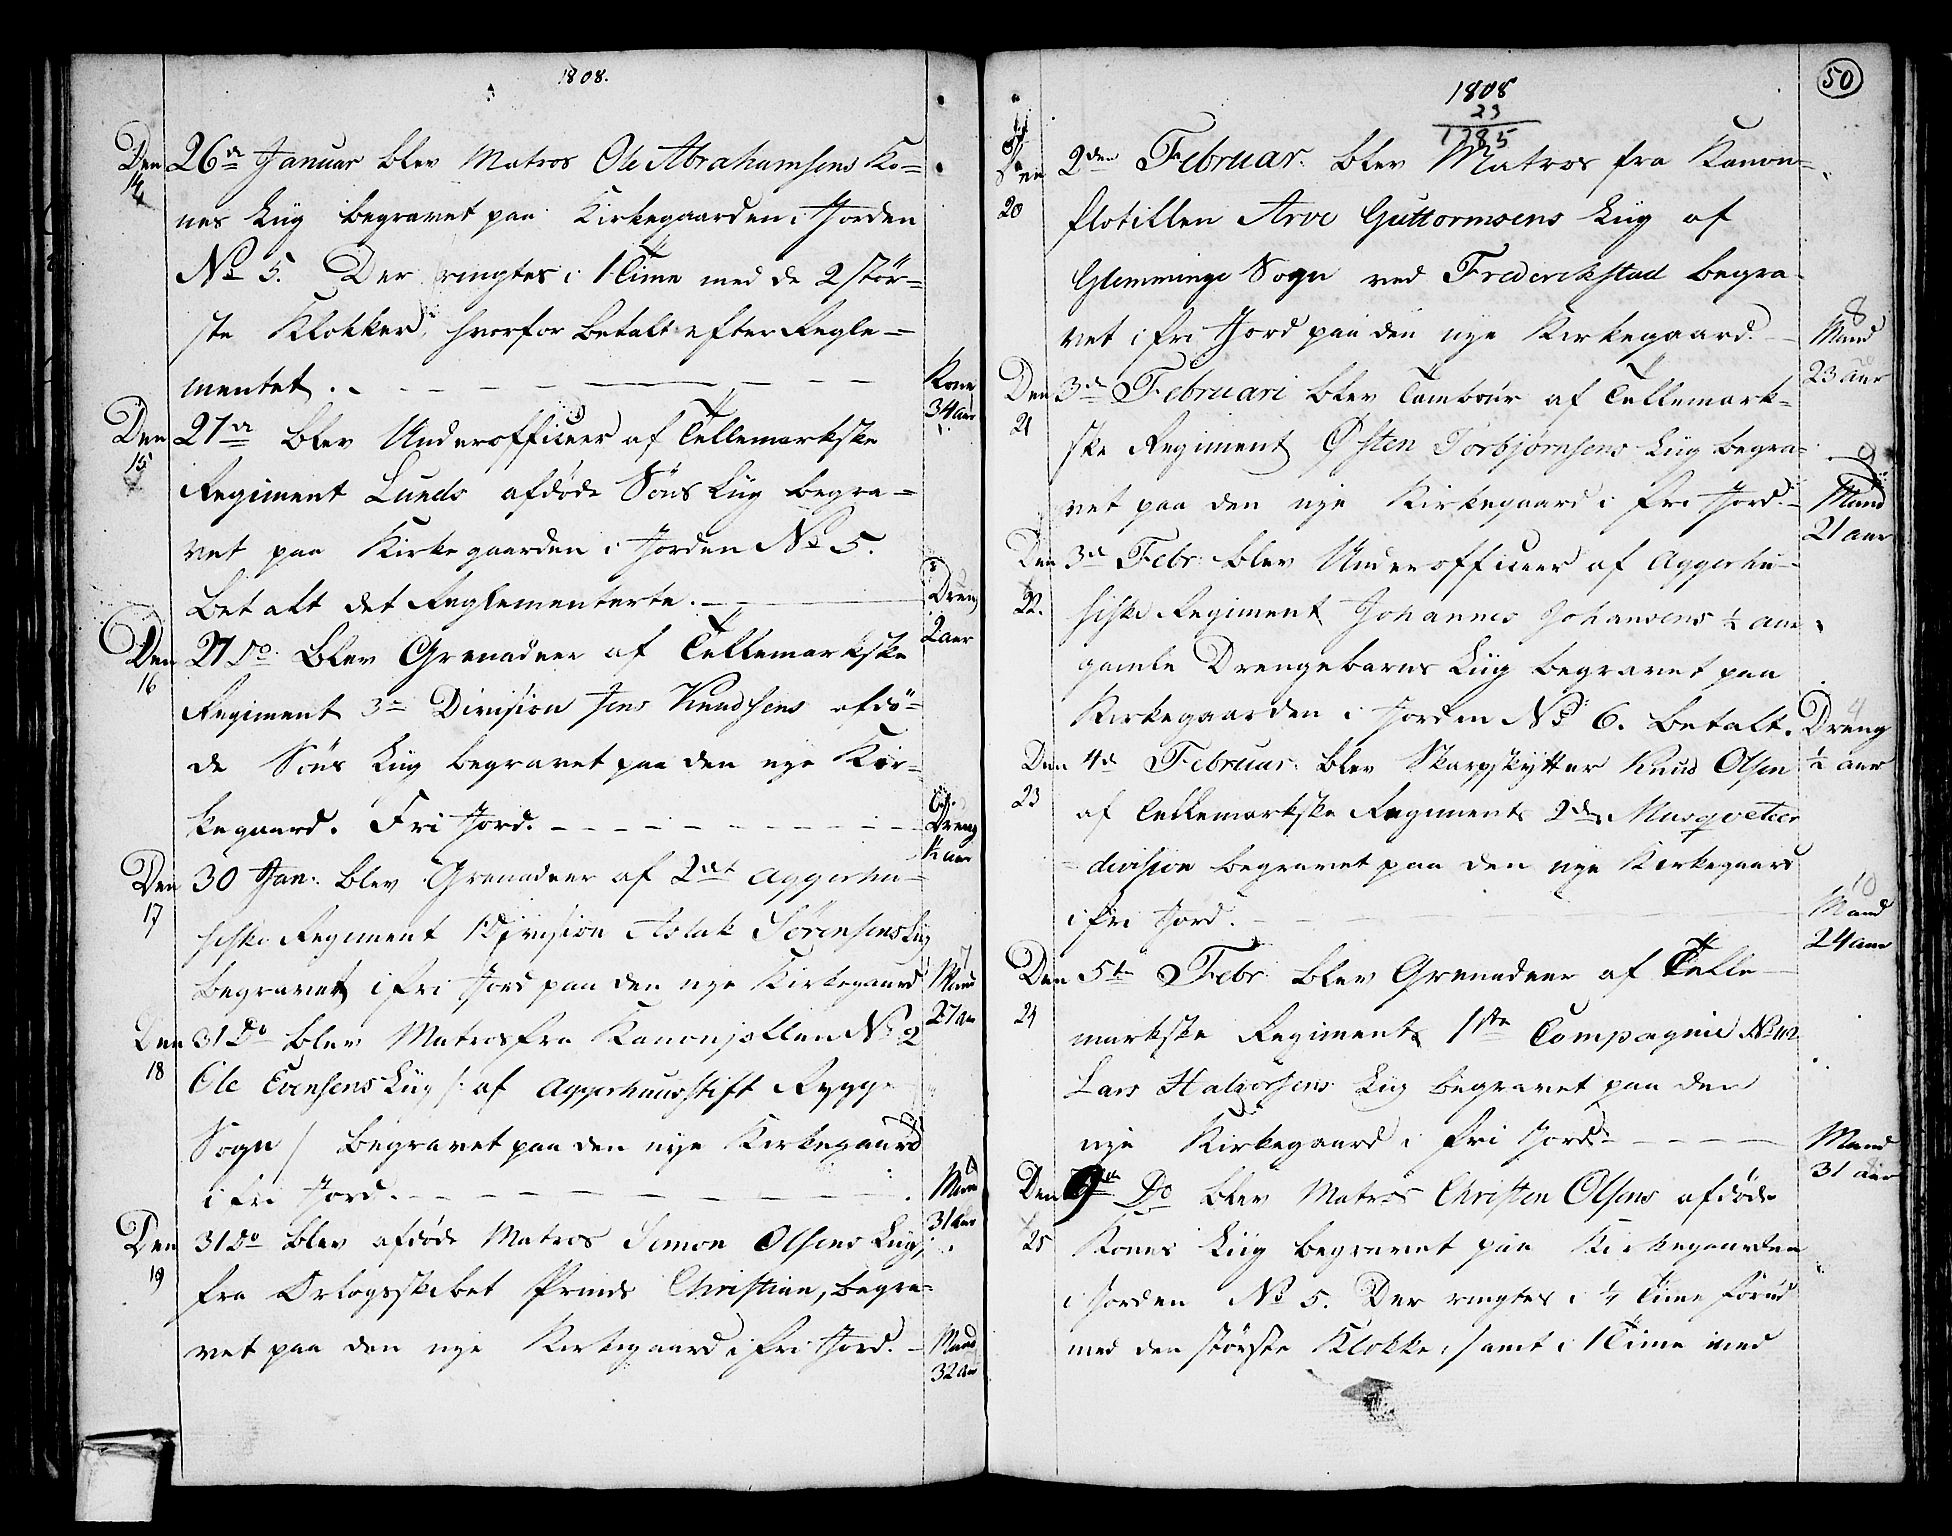 1808.
Den 26de Januar blev Matros Ole Abrahamsens Ko=
14
nes Liig begravet paa Kirkegaarden i Jorden
No 5. Der ringtes i 1 Time med de 2 stør=
ste Klokker, hvorfor betalt efter Regle=
mentet. Kone
34 aar
Den 27de blev Underofficeer af Tellemarkske
15
Regiment Lunds afdøde Søns Liig begra=
vet paa Kirkegaarden i Jorden No 5.
Betalt det Reglementerte. Dreng
2 aar
Den 27 Do blev Grenadeer af Tellemarkske
16
Regiment 3de Division Jens Knudsens afdø=
de Søns Liig begravet paa den nye Kir=
kegaard. Fri Jord. Dreng
½ aar
Den 30 Jan: blev Grenadeer af 2det Aggerhu=
17
siske Regiment 1 Division Aslak Sörensens Liig
begravet i fri Jord paa den nye Kirkegaard
7
Mand
27 aar
Den 31 Do blev Matros fra Kanonjollen No 2
18
Ole Evensens Liig /: af Aggerhuusstift Rygge
Sogn / begravet paa den nye Kirkegaard
i fri Jord. Mand
31 aar
Den 31 Do blev afdøde Matros Simon Olsens Liig,
19
fra Orlogsskibet Prinds Christian, begra=
vet paa den nye Kirkegaard i fri Jord. Mand
32 aar
50
1808
23
1785
Den 2den Februar: blev Matros fra Kanon=
20
flotillen Arve Guttormsens Liig af
Glemminge Sogn ved Frederikstad begra=
vet i fri Jord paa den nye Kirkegaard.
8
Mand
23 aar
Den 3de Februari blev Tambour af Tellemark=
21
ske Regiment Østen Torbjornsens Liig begra=
vet paa den nye Kirkegaard i fri Jord.
9
Mand
21 aar
Den 3de Febr: blev Underofficeer af Aggerhu=
22.
siske Regiment Johannes Johansens ½ aar
gamle Drengebarns Liig begravet paa
Kirkegaarden i Jorden No 6. betalt. Dreng
½ aar
Den 4de Februar: blev Skarpskytter Knud Olsen
23
af Tellemarkske Regiments 2den Musqveteer
division begravet paa den nye Kirkegaard
i fri Jord.
10
Mand
24 aar
Den 5te Febr: blev Grenadeer af Telle=
24
markske Regiments 1ste Compagnie
Lars Halvorsens Liig begravet paa den
nye Kirkegaard i fri Jord. Mand
31 aar
Den 9de Do blev Matros Christen Olsens afdøde
25
Kones Liig begravet paa Kirkegaarden
i Jorden No 5. Der ringtes i Time forud
med den største Klokke, samt i 1 Time med